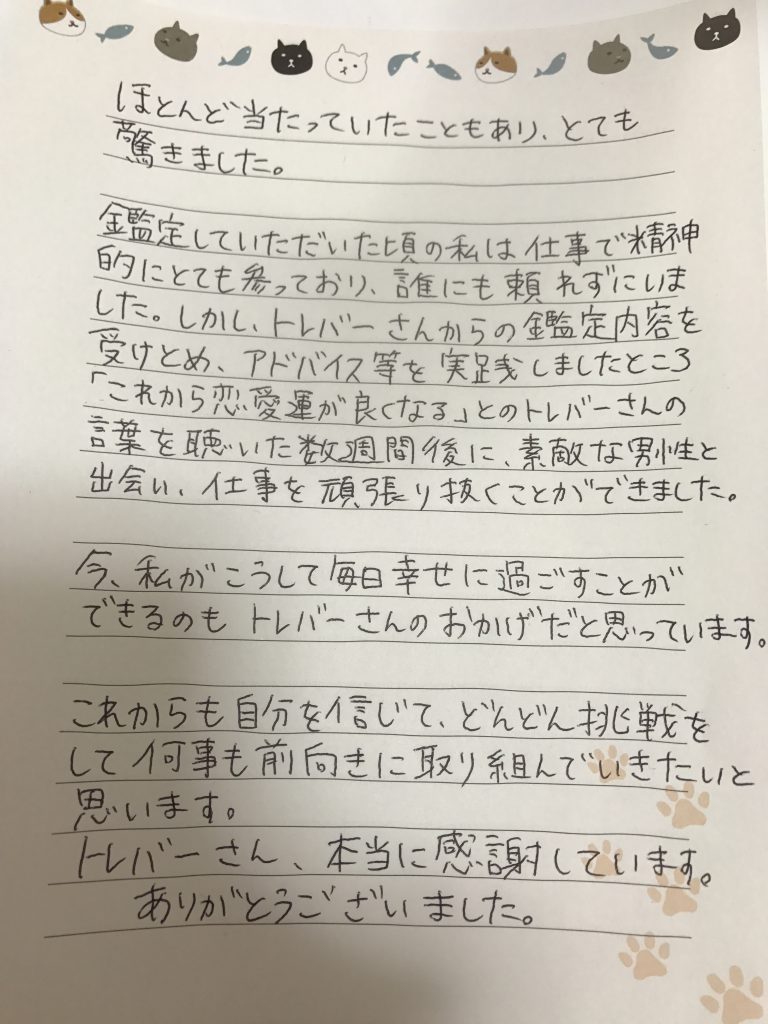 ほとんど当たっていたこともあり、とても
驚きました。
鑑定していただいた頃の私は仕事で精神
的にとても参っており、誰にも頼れずにいま
した。しかし、トレバーさんからの鑑定内容を
受けとめ、アドバイス等を実践しましたところ
「これから恋愛運が良くなる」とのトレバーさんの
言葉を聴いた数週間後に、素敵な男性と
出会い、仕事を頑張り抜くことができました。
今、私がこうして毎日幸せに過ごすことが
できるのもトレバーさんのおかげだと思っています。
これからも自分を信じて、どんどん挑戦を
して何事も前向きに取り組んでいきたいと
思います。
トレバーさん、本当に感謝しています。
ありがとうございました。